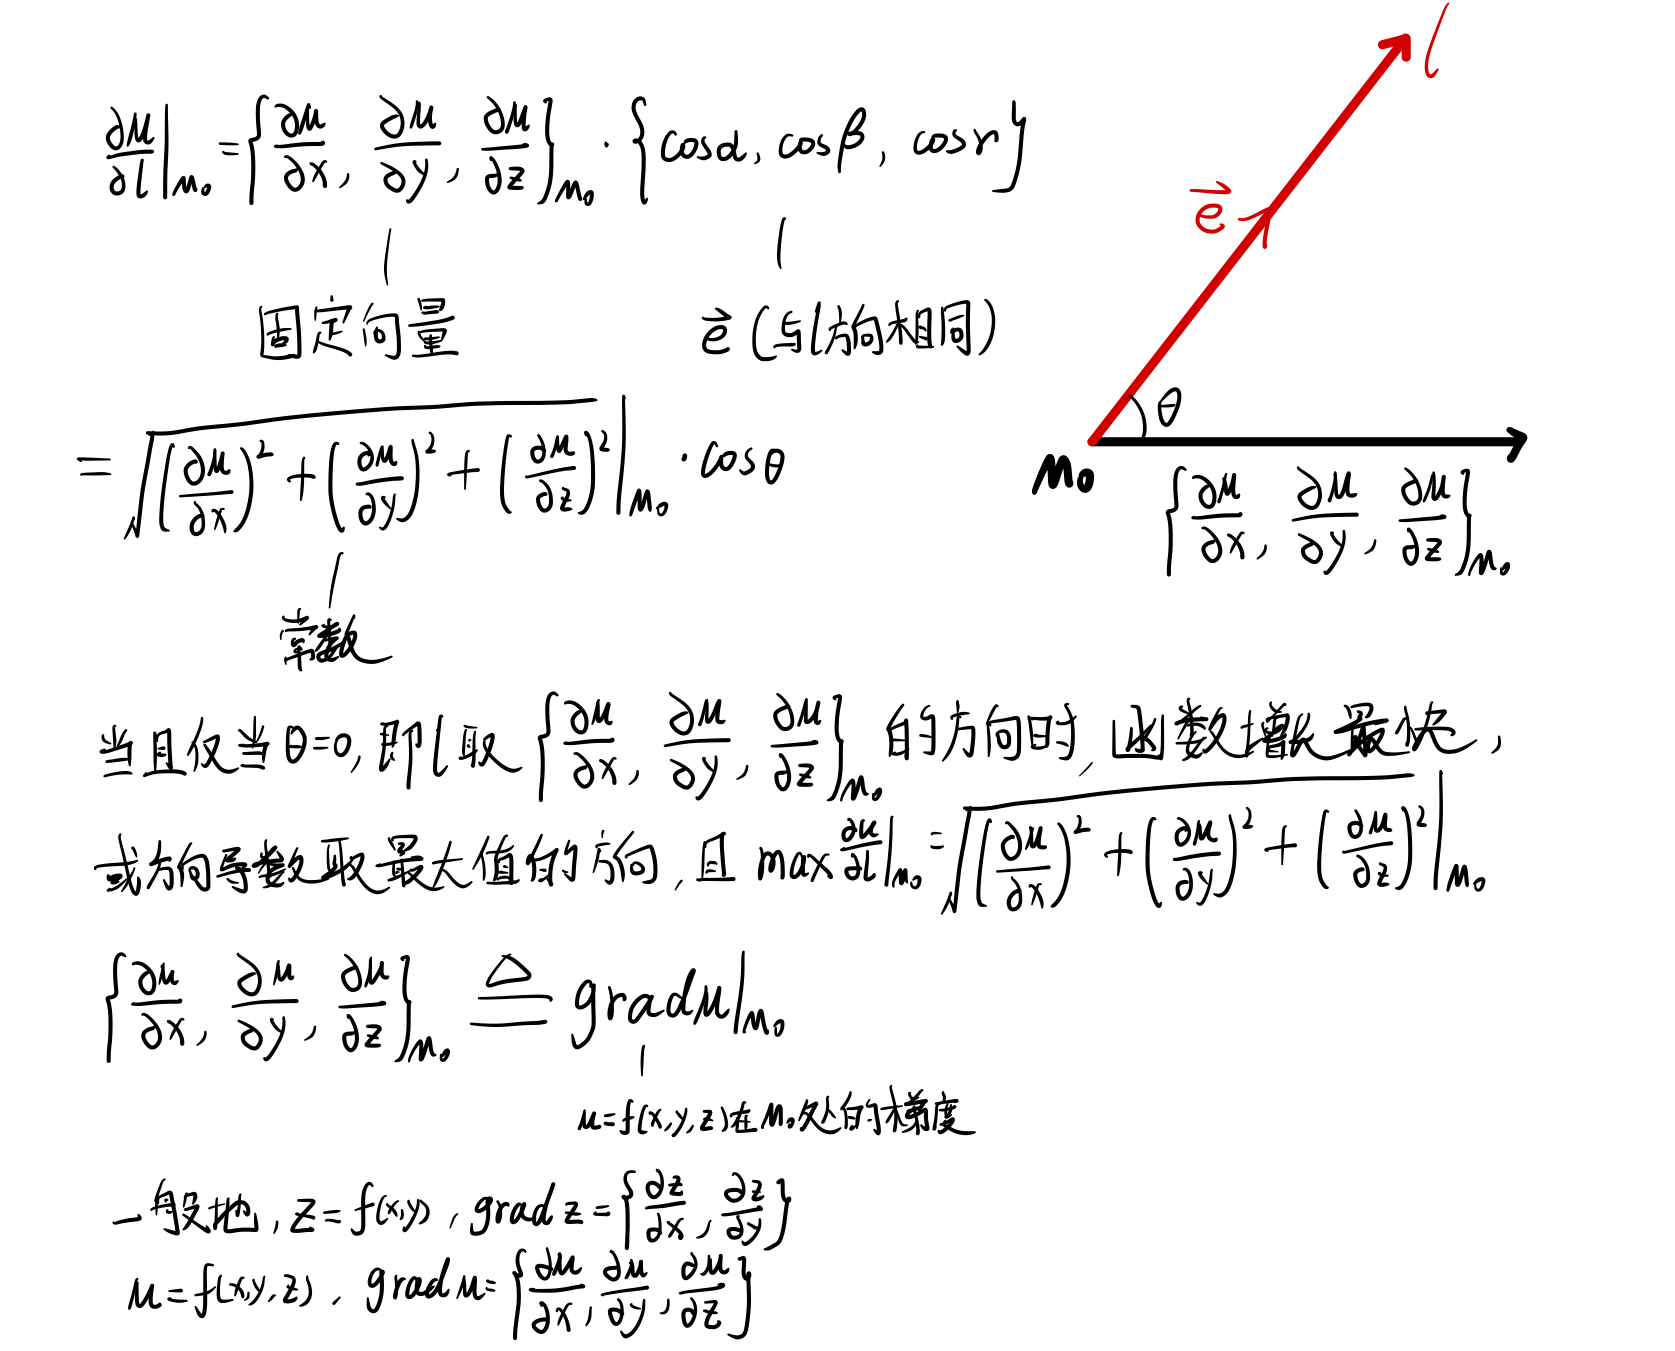 ∂u/∂l|M₀ = {∂u/∂x, ∂u/∂y, ∂u/∂z}M₀ · {cosα, cosβ, cosr}
固定向量
e⃗ (与l方向相同)
= √((∂u/∂x)² + (∂u/∂y)² + (∂u/∂z)²)|M₀ · cosθ
常数
l
e⃗
θ
M₀
{∂u/∂x, ∂u/∂y, ∂u/∂z}M₀
当且仅当θ=0, 即l取{∂u/∂x, ∂u/∂y, ∂u/∂z}M₀的方向时, 函数增长最快,
或方向导数取最大值的方向, 且 max ∂u/∂l|M₀ = √((∂u/∂x)² + (∂u/∂y)² + (∂u/∂z)²)|M₀
{∂u/∂x, ∂u/∂y, ∂u/∂z}M₀ ≜ gradu|M₀
u=f(x,y,z)在M₀处的梯度
一般地, z=f(x,y), grad z={∂z/∂x, ∂z/∂y}
u=f(x,y,z), grad u={∂u/∂x, ∂u/∂y, ∂u/∂z}